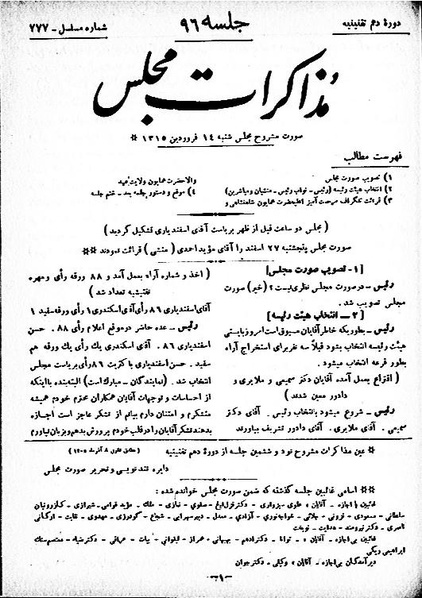 دورهٔ دهم تقنینیه
جلسه ۹۶
شماره مسلسل - ۷۷۷
مذاکرات مجلس
صورت مشروح مجلس شنبه ۱۴ فروردین ۱۳۱۵ *
فهرست مطالب
۱) تصویب صورت مجلس
۲) انتخاب هیئت رئیسه (رئیس - نواب رئیس - منشیان و مباشرین)
۳) قرائت تلگراف مرحمت آمیز اعلیحضرت همایون شاهنشاهی و
والاحضرت همایون ولایت عهد
۴) موقع و دستور جلسه بعد - ختم جلسه
( مجلس دو ساعت قبل از ظهر بریاست آقای اسفندیاری تشکیل گردید )
صورت مجلس پنجشنبه ۲۷ اسفند را آقای مؤید احمدی ( منشی ) قرائت نمودند **
[ ۱ - تصویب صورت مجلس ]
رئیس - در صورت مجلس نظری نیست ؟ (خیر) صورت
مجلس تصویب شد .
[ ۲ - انتخاب هیئت رئیسه ]
رئیس - بطوریکه خاطر آقایان مسبوق است امروز بایستی
هیئت رئیسه انتخاب بشود قبلاً سه نفر برای استخراج آراء
بطور قرعه انتخاب میشود .
( اقتراع بعمل آمده آقایان دکتر سمیعی و ملایری و
دادور معین شدند )
رئیس - شروع میشود بانتخاب رئیس . آقای دکتر
سمیعی . آقای ملایری . آقای دادور تشریف بیاورند
( اخذ و شماره آراء بعمل آمد و ۸۸ ورقه رأی و مهره
تفتیشیه تعداد شد )
آقای اسفندیاری ۸۶ رأی آقای اسکندری ۱ رأی ورقه سفید ۱
رئیس - عده حاضر در موقع اعلام رأی ۸۸ . حسن
اسفندیاری ۸۶ . آقای اسکندری یک رأی یک ورقه هم
سفید . حسن اسفندیاری با کثریت ۸۶ رأی بریاست مجلس
انتخاب شد . (نمایندگان - مبارک است) البته بنده با اینکه
از احساسات و توجهات آقایان همکاران عزیزم خودم همیشه
متشکرم و امتنان دارم بیانم از تشکر عاجز است اجازه
بدهند تشکر آقایان را در قلب خودم پرورش بدهم و بزبان نیاورم
* عین مذاکرات مشروح نود و ششمین جلسه از دورهٔ دهم تقنینیه
دایره تندنویسی و تحریر صورت مجلس
** اسامی غائبین جلسه گذشته که ضمن صورت مجلس خوانده شده :
غائبین با اجازه - آقایان :
غائبین بی اجازه - آقایان :
ابراهیمی ریگی
دیر آمدگان بی اجازه - آقایان : وکیلی - دکتر جوان
-۱-